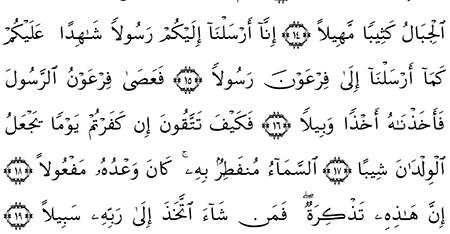 ٱلۡجِبَالُ كَثِيبٗا مَّهِيلًا ١٤ إِنَّآ أَرۡسَلۡنَآ إِلَيۡكُمۡ رَسُولٗا شَٰهِدًا عَلَيۡكُمۡ
كَمَآ أَرۡسَلۡنَآ إِلَىٰ فِرۡعَوۡنَ رَسُولٗا ١٥ فَعَصَىٰ فِرۡعَوۡنُ ٱلرَّسُولَ
فَأَخَذۡنَٰهُ أَخۡذٗا وَبِيلٗا ١٦ فَكَيۡفَ تَتَّقُونَ إِن كَفَرۡتُمۡ يَوۡمٗا يَجۡعَلُ
ٱلۡوِلۡدَٰنَ شِيبًا ١٧ ٱلسَّمَآءُ مُنفَطِرُۢ بِهِۦۚ كَانَ وَعۡدُهُۥ مَفۡعُولًا ١٨
إِنَّ هَٰذِهِۦ تَذۡكِرَةٞۖ فَمَن شَآءَ ٱتَّخَذَ إِلَىٰ رَبِّهِۦ سَبِيلًا ١٩